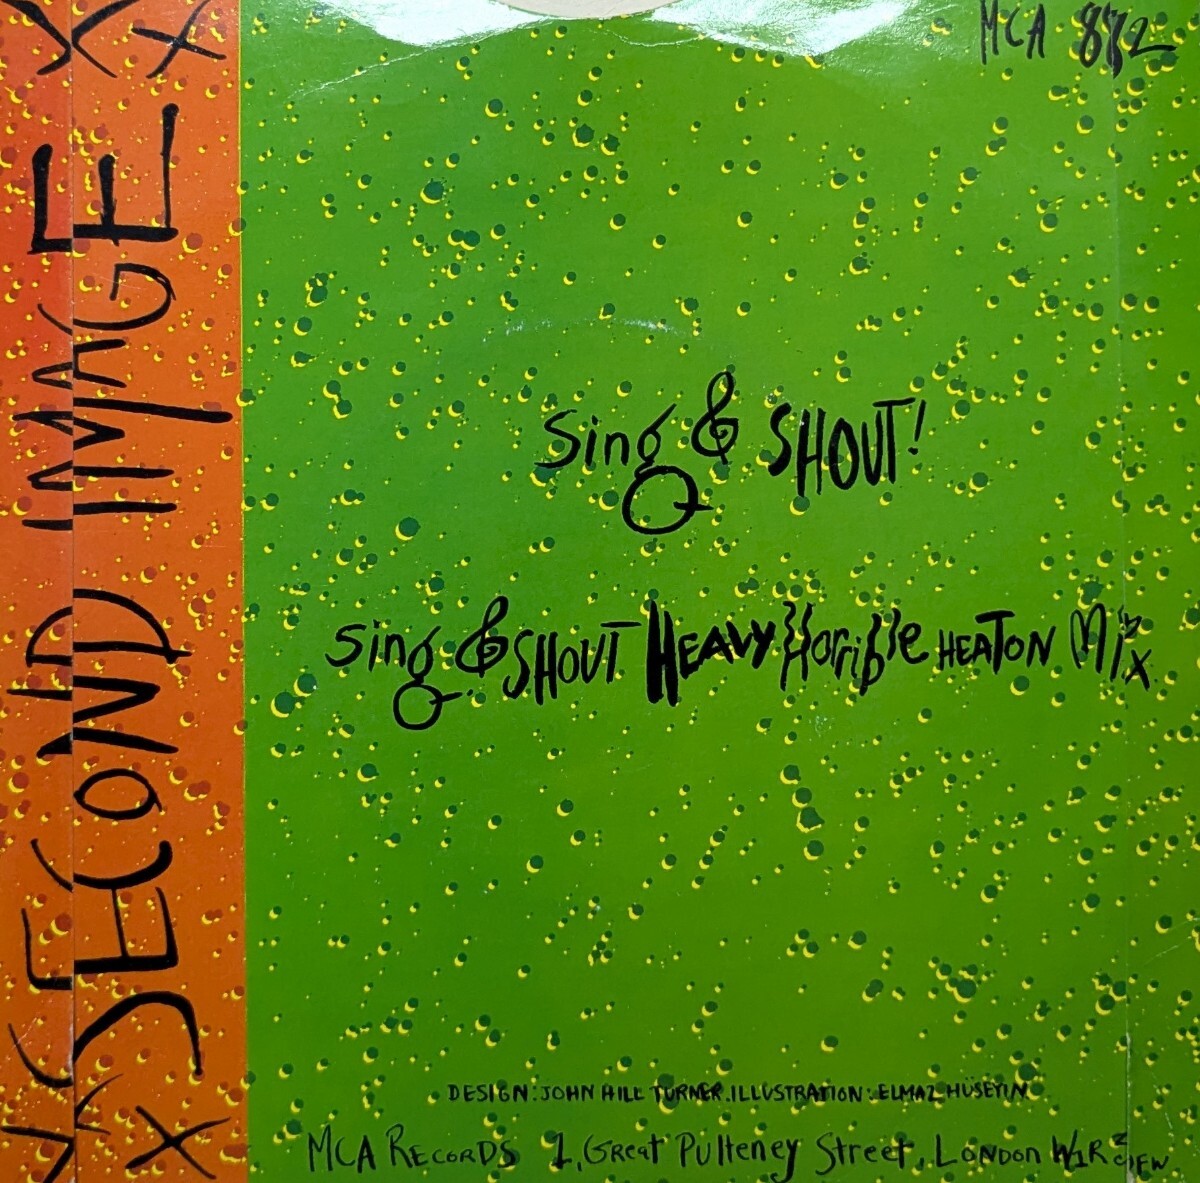 MCA 882
X SECOND IMAGE X
Sing & SHOUT!
Sing & SHOUT HEAVY Horrible HEATON Mix
DESIGN: JOHN HILL TURNER. ILLUSTRATION: ELMAZ HÜSEYIN
MCA RECORDS 1, Great Pulteney Street, LONDON W1R